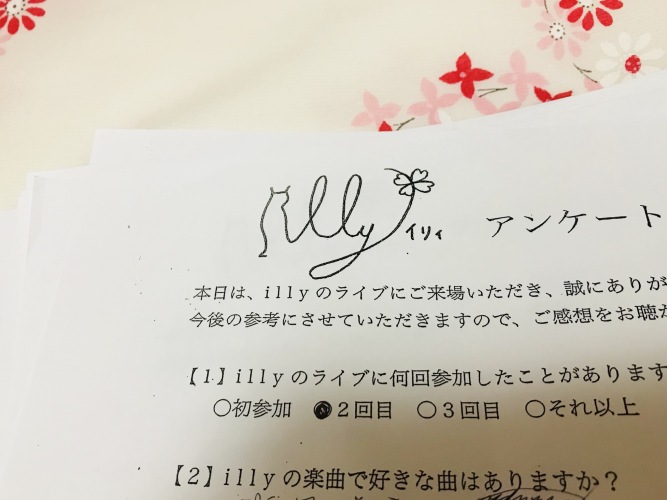 illy イリィ アンケート
本日は、illyのライブにご来場いただき、誠にありが
今後の参考にさせていただきますので、ご感想をお聴か
【1】illyのライブに何回参加したことがあります
○初参加 ●2回目 ○3回目 ○それ以上
【2】illyの楽曲で好きな曲はありますか？